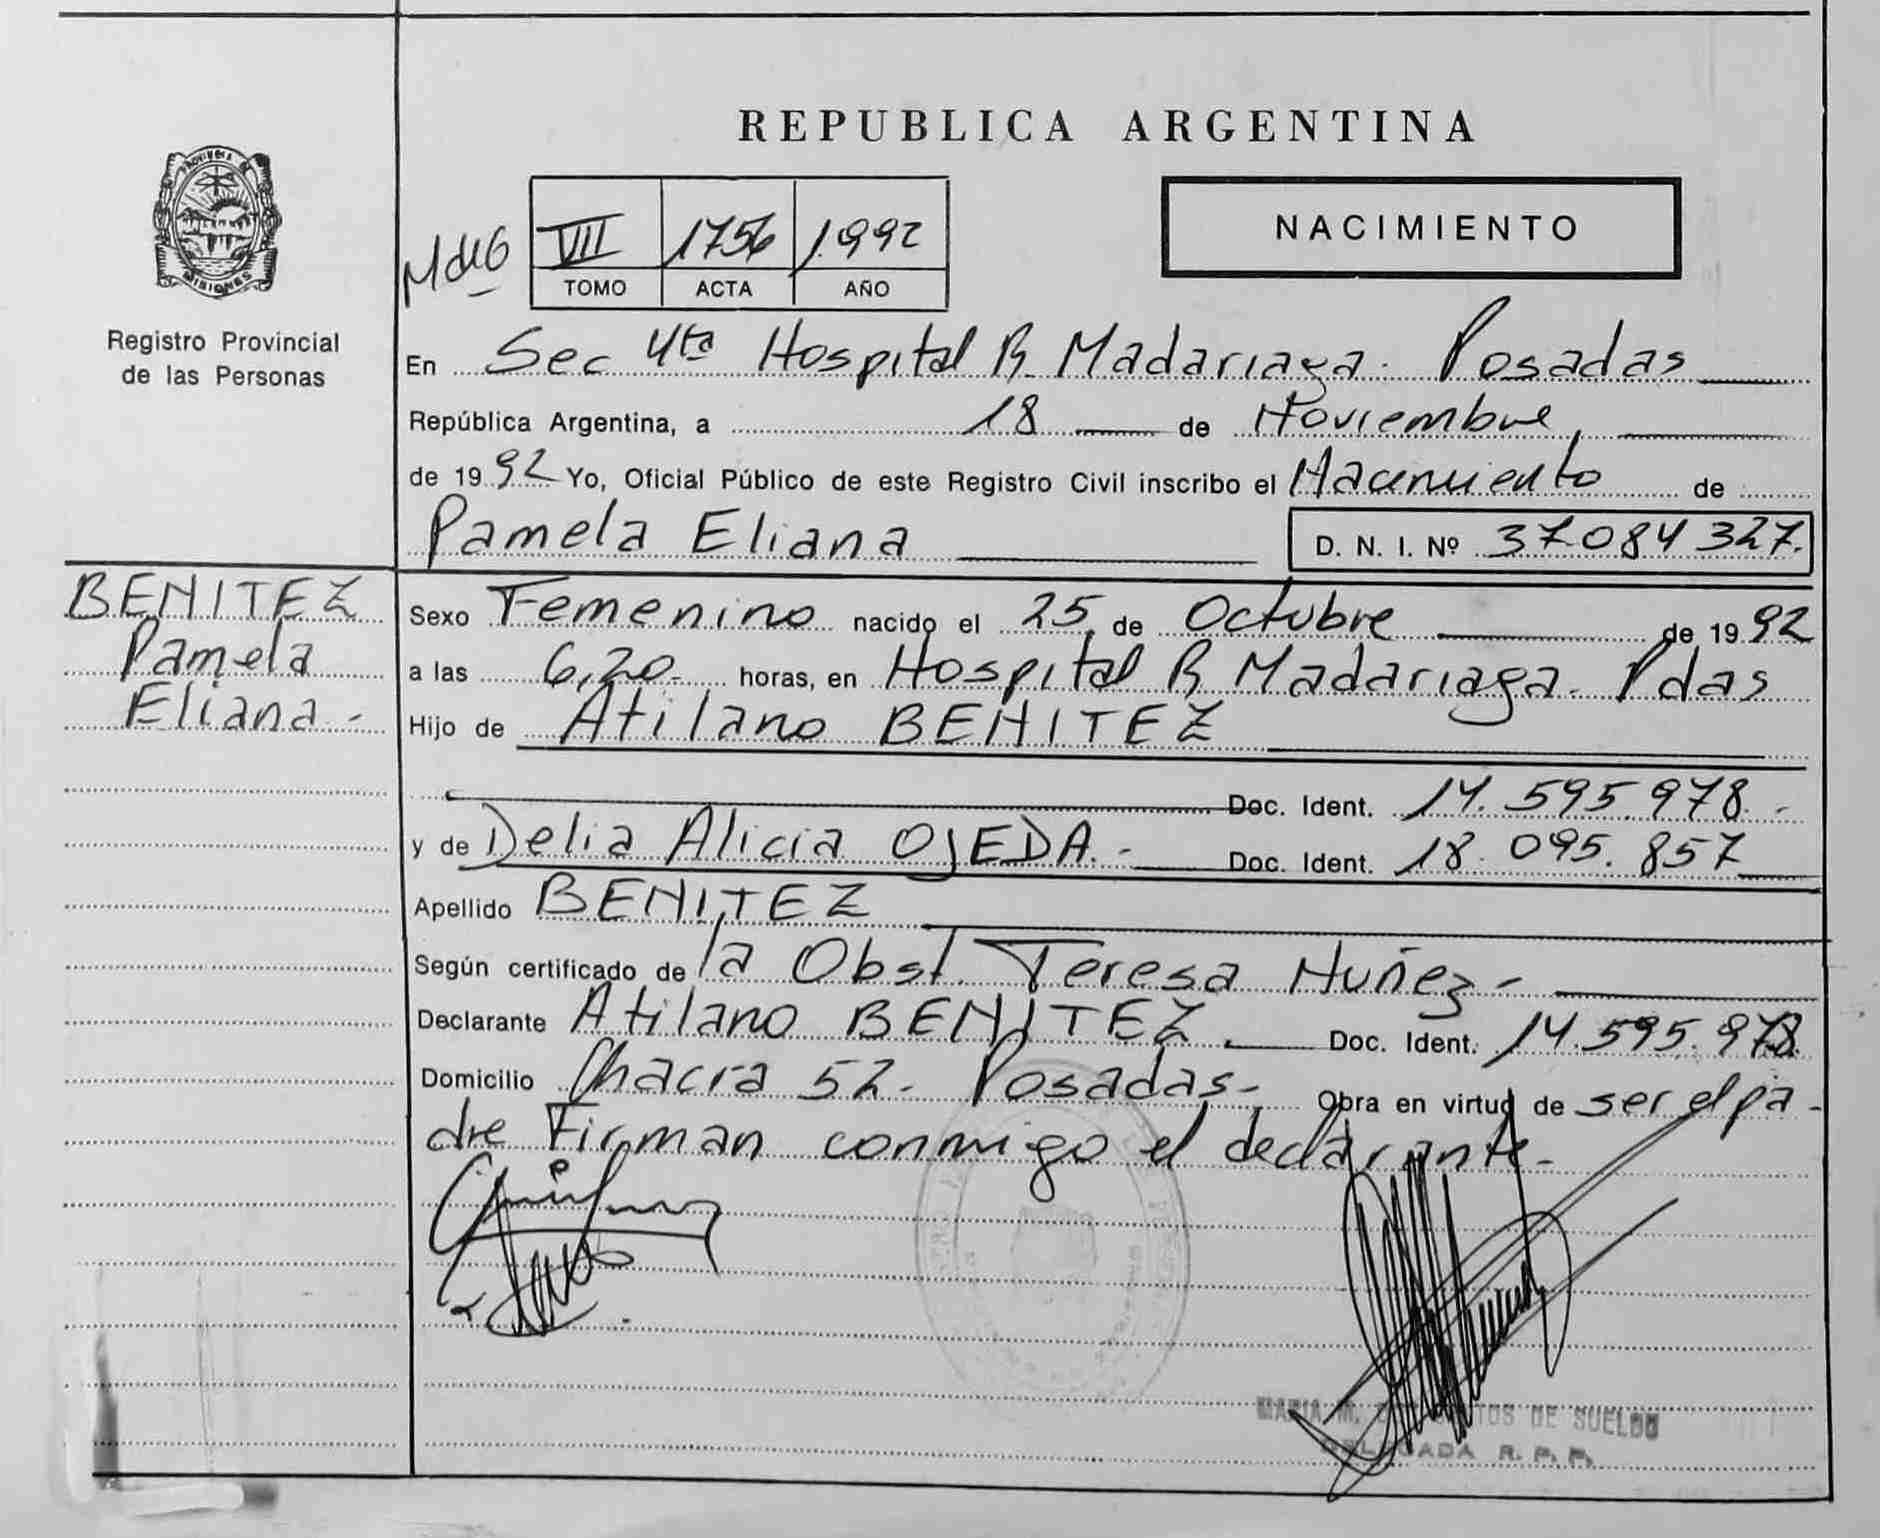 REPUBLICA ARGENTINA
PROVINCIA DE
MISIONES
Registro Provincial
de las Personas
VII 1756 1992
TOMO ACTA AÑO
NACIMIENTO
En Sec 4ta Hospital R Madariaga. Posadas
República Argentina, a 18 de Noviembre
de 1992 Yo, Oficial Público de este Registro Civil inscribo el Nacimiento de
Pamela Eliana D. N. I. Nº 37.084 327.
BENITEZ
Pamela
Eliana -
Sexo Femenino nacido el 25 de Octubre de 1992
a las 6,20 horas, en Hospital R Madariaga. Pdas
Hijo de Atilano BENITEZ
Doc. Ident. 14.595.978.-
y de Delia Alicia OJEDA.- Doc. Ident. 18.095.857
Apellido BENITEZ
Según certificado de la Obst. Teresa Nuñez-
Declarante Atilano BENITEZ Doc. Ident. 14.595.978
Domicilio Chacra 52- Posadas- Obra en virtud de ser el pa-
dre Firman conmigo el declarante.-
MARIA M. DE SUELDO
DELEGADA R. P. P.